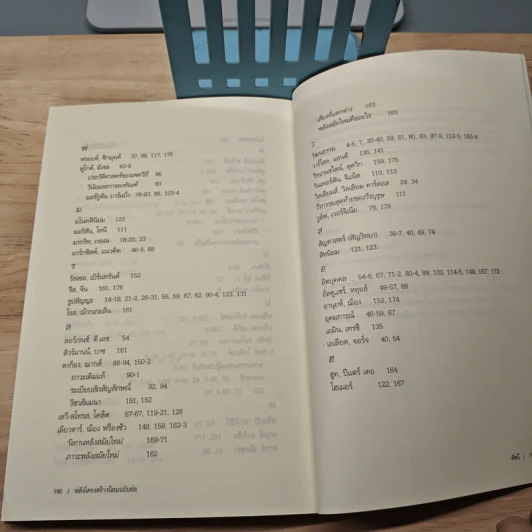 ฟ
ฟรอยด์, ซิกมุนด์ 37, 98, 117, 176
ฟูโก้ต์, มิเชล 83-8
ประวัติศาสตร์ของเพศวิถี 86
วินัยและการลงทัณฑ์ 83
ม
มโนคตินิยม 123
มอริสัน, โทนี 111
มากริท, เรอเน 18-20, 33
มาร์กซิสต์, แนวคิด 46-8, 89
ร
รัสเซล, เบิร์นทรันด์ 152
รีส, จีน 161, 176
รูปสัญญะ 14-18, 21-2, 26-31, 55, 59, 67, 82, 90-4, 123, 131
โรส, แจ็กเกอลีน 161
ล
ลอว์เรนซ์, ดี.เอช 54
ลัวร์มานน์, บาซ 161
ลากือง, ฌากส์ 88-94, 150-2
ภาวะเดิมแท้ 90-1
ระเบียบเชิงสัญลักษณ์ 92, 94
วิชาสัมมนา 151, 152
เลวี-สโทรส, โคล้ด 57-67, 119-21, 126
เลียวตาร์, ฌ็อง ฟร็องซัว 148, 159, 162-3
นิทานหลังสมัยใหม่ 169-71
ภาวะหลังสมัยใหม่ 162
190 / หลังโครงสร้างนิยมฉบับย่อ
เสียงที่แตกต่าง 163
หลังสมัยใหม่คืออะไร 163
ว
วัฒนธรรม
วาร์โฮล, แอนดี 135, 141
วิลเลียมส์, วิลเลียม คาร์ลอส 24, 34
วูล์ฟ, เวอร์จิเนีย 76, 178
ส
สัญศาสตร์ (สัญวิทยา) 36-7, 40, 49, 74
สัทนิยม 121, 123
อ
อัตบุคคล
อัลธูแซร์, หลุยส์ 49-57, 88
อานุยห์, ฌ็อง 152, 174
อุดมการณ์ 46-59, 67
เอมิน, เทรซี 135
เอเลียต, จอร์จ 40, 54
ฮ
ฮูท, ปีแตร์ เดอ 164
โฮเมอร์ 122, 167
ดัชนี